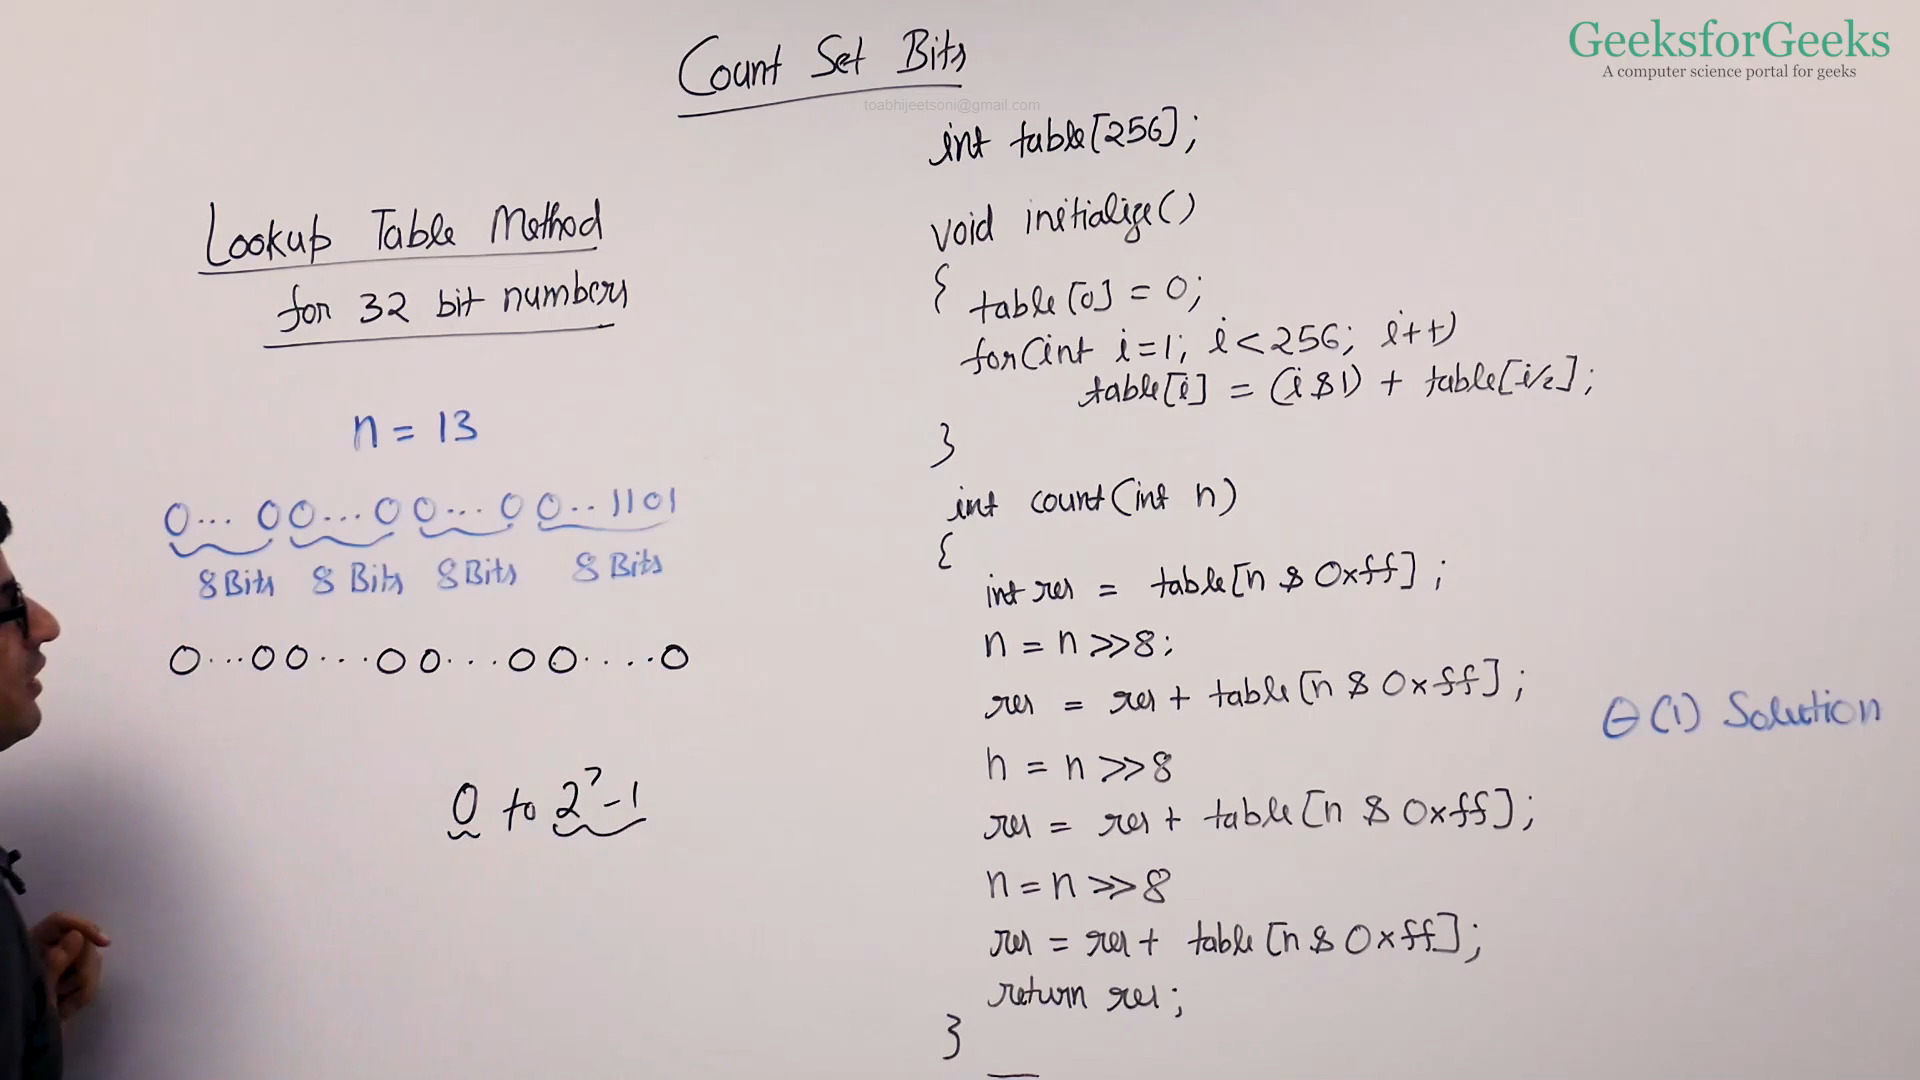 GeeksforGeeks
A computer science portal for geeks
Count Set Bits
toabhijeetsoni@gmail.com
Lookup Table Method
for 32 bit numbers
n = 13
0... 0 0...0 0...0 0..1101
8 Bits 8 Bits 8 Bits 8 Bits
0...0 0...0 0...0 0....0
0 to 2⁷-1
int table[256];
void initialize()
{ table[0] = 0;
for(int i=1; i<256; i++)
table[i] = (i&1) + table[i/2];
}
int count(int n)
{
int res = table[n & 0xff];
n = n >>8;
res = res + table[n & 0xff];
n = n >>8
res = res + table[n & 0xff];
n = n >>8
res = res + table[n & 0xff];
return res;
}
θ(1) Solution